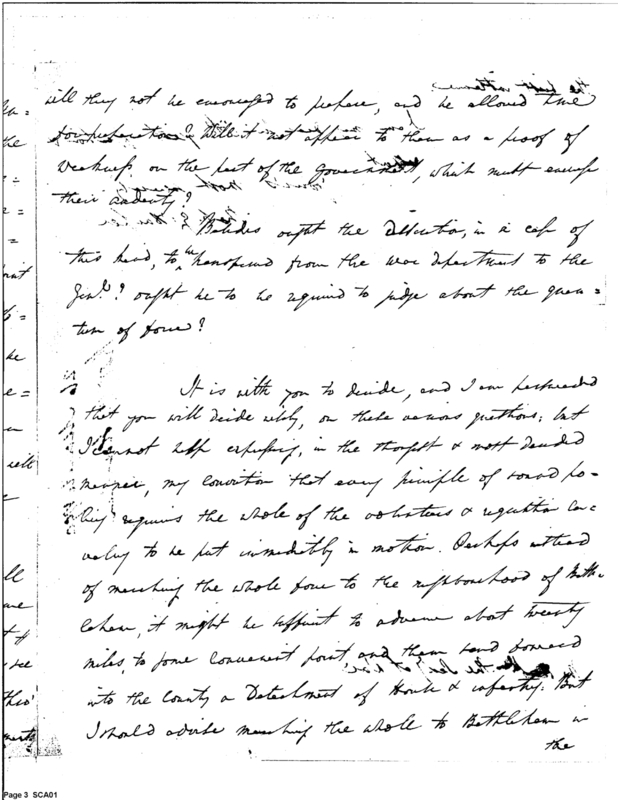 will they not be encouraged to prepare, and be allowed time
for preparation? Will it not appear to them as a proof of
weakness, on the part of the Government, which must encrease
their audacity?
Besides ought the discretion, in a case of
this kind, to be transferred from the war department to the
Genl.? ought he to be required to judge about the quan=
tum of force?
It is with you to decide, and I am persuaded
that you will decide wisely, on these various questions; but
I cannot help expressing, in the strongest & most decided
manner, my conviction that every principle of sound po-
licy requires the whole of the volunteers & regulation ca-
valry to be put immediately in motion. Perhaps instead
of marching the whole force to the neighbourhood of Beth-
lehem, it might be sufficient to advance about twenty
miles, to some convenient point, and then send forward
into the County a Detachment of Horse & infantry. But
I should advise marching the whole to Bethlehem in
the
Page 3 SCA01